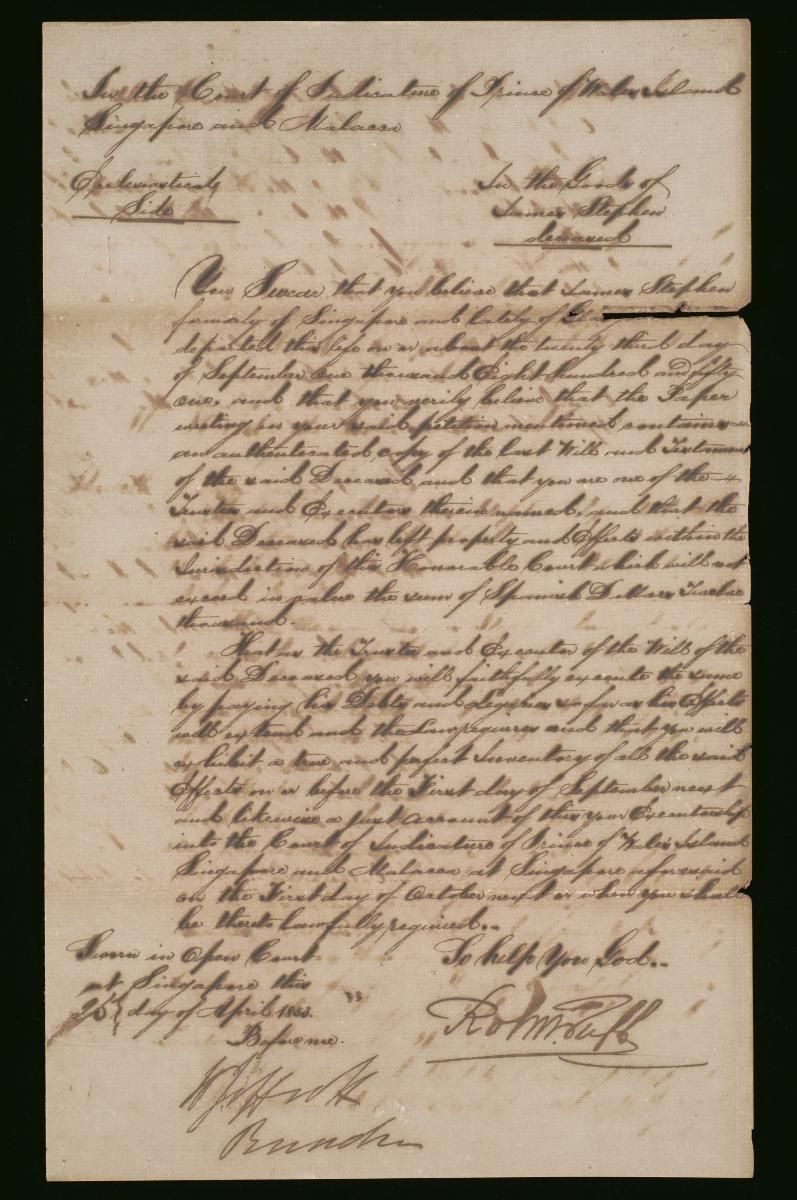 In the Court of Judicature of Prince of Wales Island
Singapore and Malacca
Ecclesiastical
Side
In the Goods of
James Stephen
deceased
You Swear that you believe that James Stephen
formerly of Singapore and lately of
departed this life on or about the twenty third day
of September One thousand Eight hundred and fifty
one, and that you verily believe that the Paper
writing in your said petition mentioned contains
an authenticated copy of the last Will and Testament
of the said Deceased and that you are one of the
Trustees and Executors therein named, and that the
said Deceased has left property and Effects within the
Jurisdiction of this Honorable Court which will not
exceed in value the sum of Spanish Dollars Twelve
thousand.
That as the Trustee and Executor of the Will of the
said Deceased you will faithfully execute the same
by paying his Debts and Legacies so far as his Effects
will extend and the Law requires and that you will
exhibit a true and perfect Inventory of all the said
Effects on or before the First day of September next
and likewise a just account of this your Executorship
into the Court of Judicature of Prince of Wales Island
Singapore and Malacca at Singapore aforesaid
on the First day of October next or when you shall
be thereto lawfully required..
So help You God..
Sworn in Open Court
at Singapore this
25th day of April 1853.
Before me.